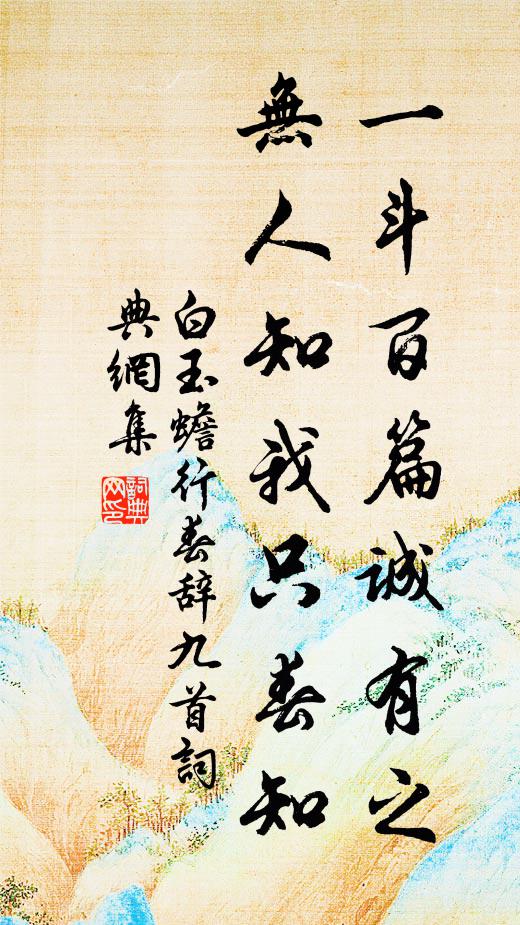 一斗百篇誠有之
無人知我只春知
白玉蟾行春辞九首詞
典網集
詞典網印